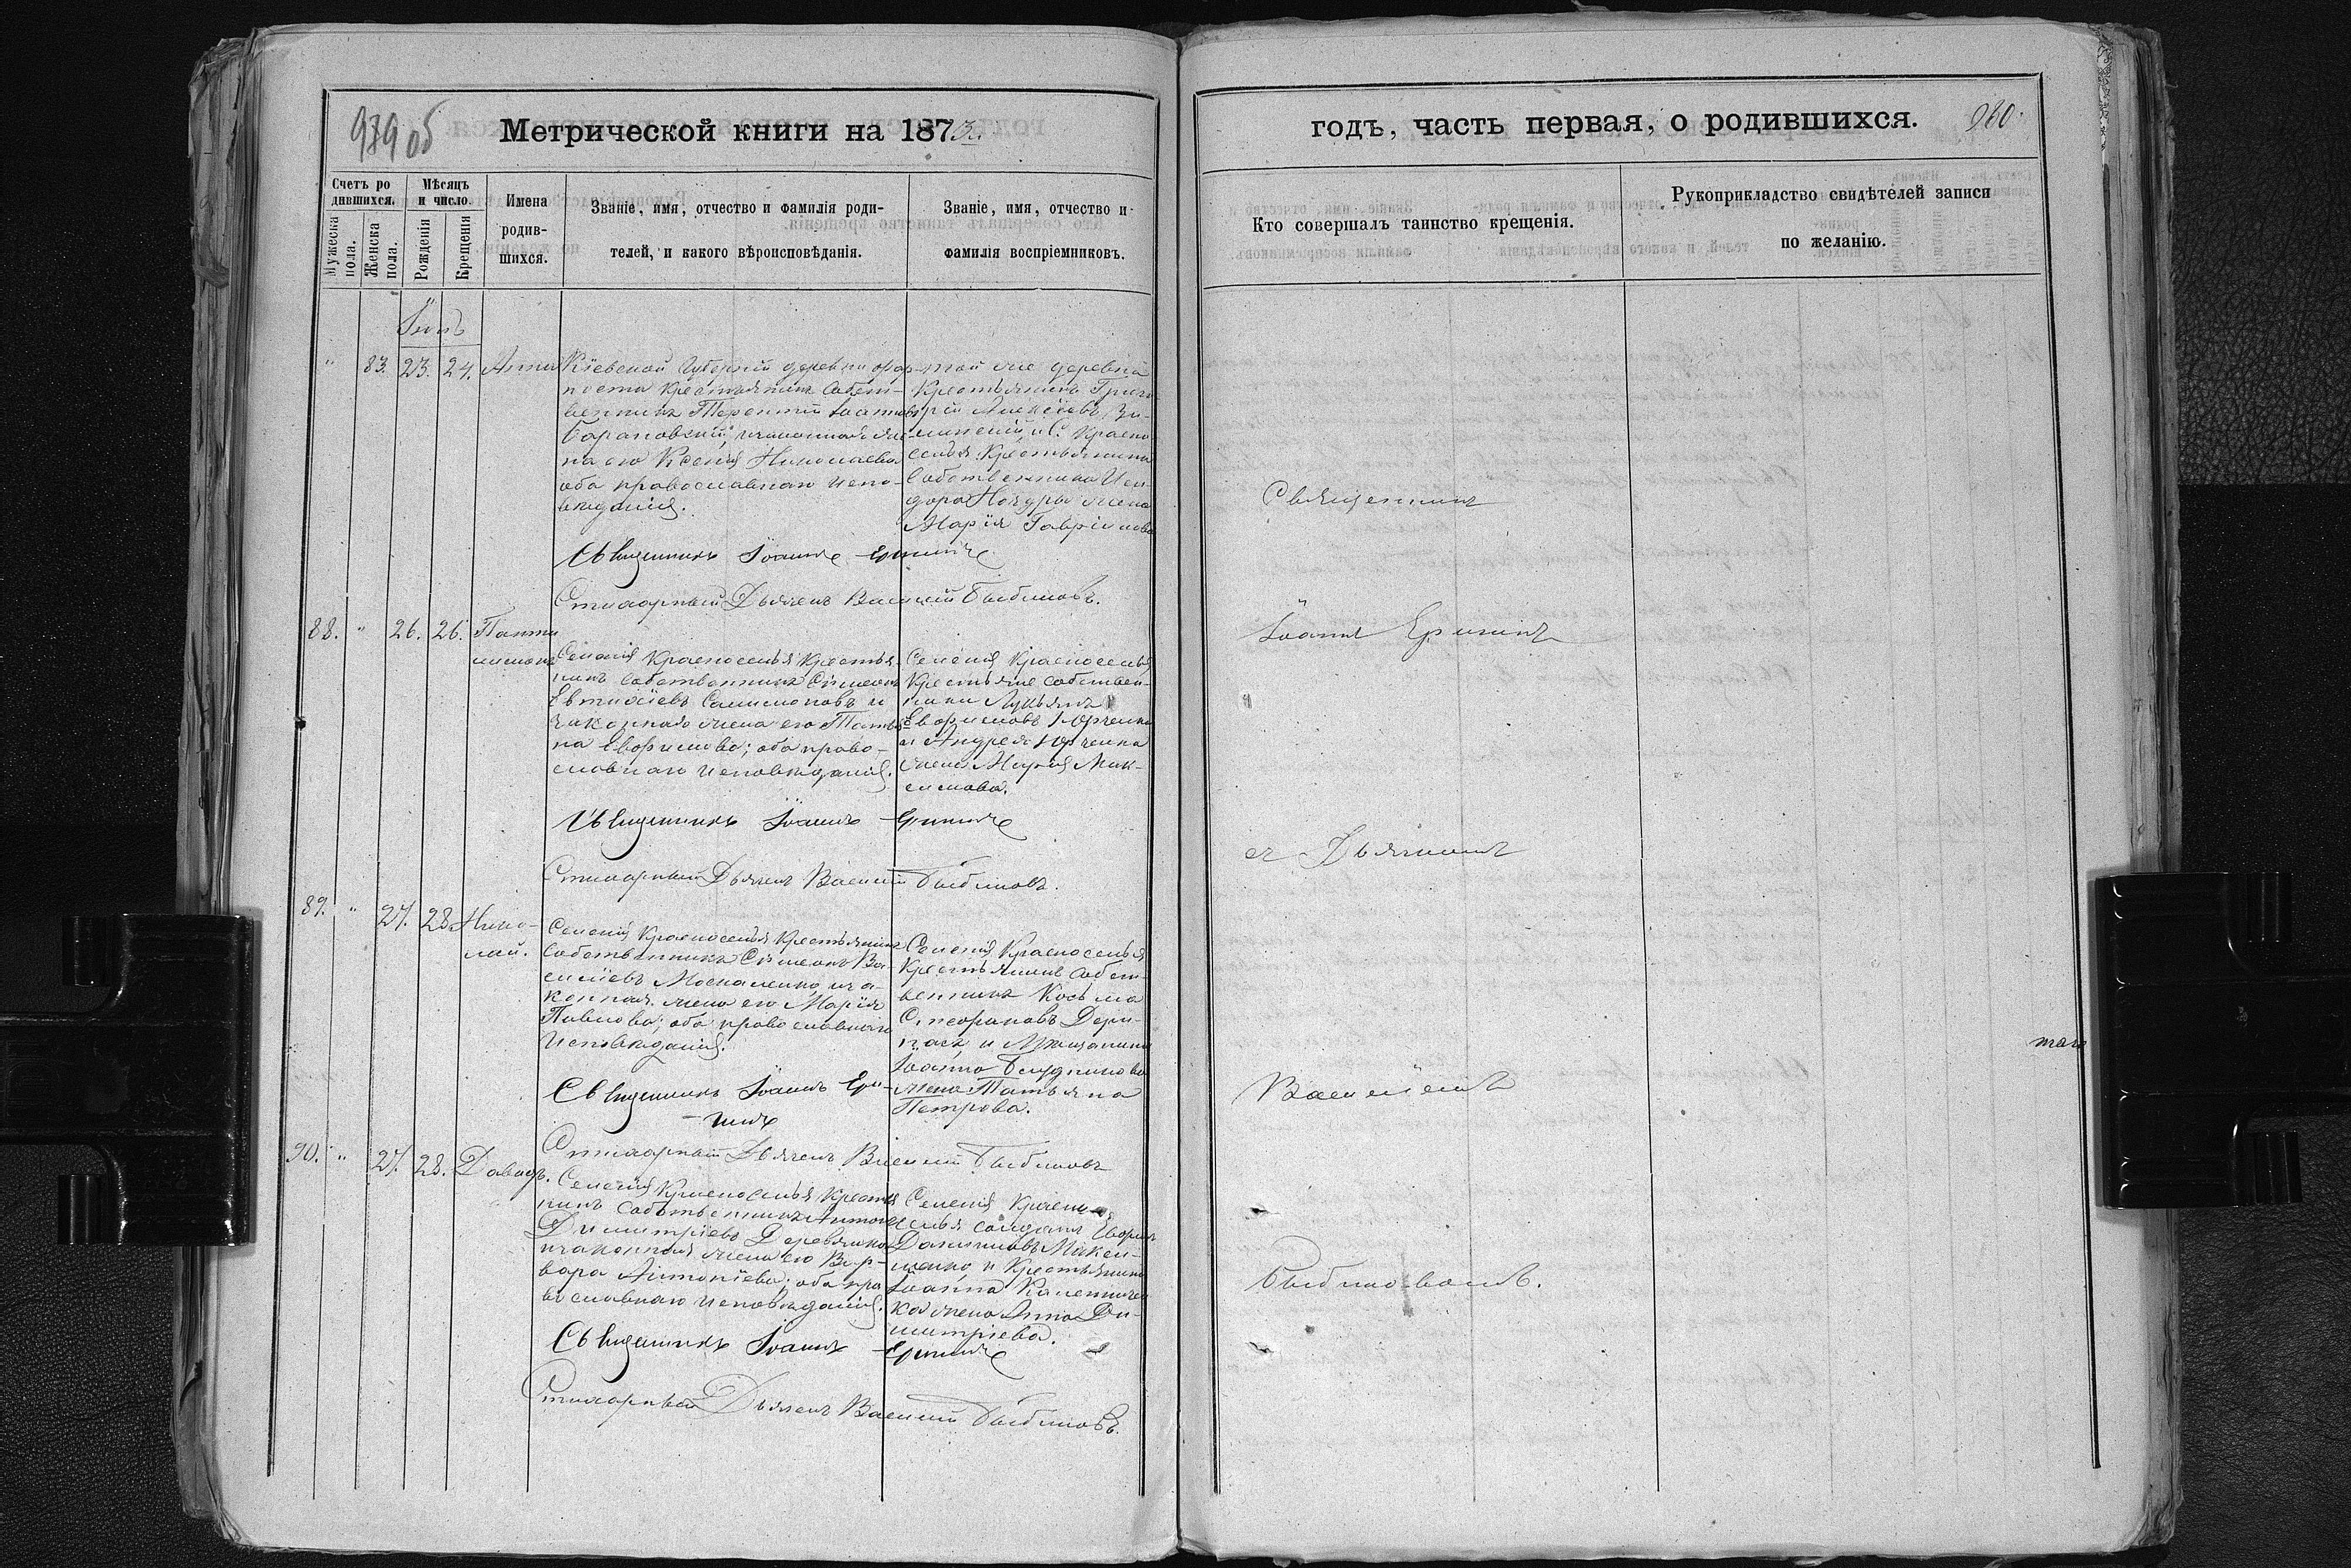 979 об
Метрической книги на 1873.
Счетъ ро
дившихся.
Мужеска
пола.
Женска
пола.
Мѣсяцъ
и число.
Рожденія
Крещенія
Имена
родив-
шихся.
Званіе, имя, отчество и фамилія роди-
телей, и какого вѣроисповѣданія.
Званіе, имя, отчество и
фамилія воспріемниковъ.
" 83. 23. 24. Анна
Кіевской Губерніи деревни
крестьянинъ собст-
венникъ Терентій
Барановскій, и законная же-
на его Ксенія Николаева
оба православнаго испо-
вѣданія.
той же деревни
Крестьянинъ Григо
рій Алексѣевъ
и С. Красно
селья Крестьянина
Собственника Иси-
дора жена
Марія Гавріилова
Священникъ Іоаннъ
Стихарный Дьячекъ Василій
88. " 26. 26. Панте
лимонъ
Селенія Красноселья Крестья
нинъ собственникъ Сѵмеонъ
Евтихіевъ и
законная жена его Татья
на Евфимова; оба право-
славнаго исповѣданія.
Селенія Красноселья
Крестьяне собствен-
ники Лукьянъ
Евфимовъ Юрченко
и Андрея Юрченка
жена Марія Мак-
симова.
Священникъ Іоаннъ
Стихарный Дьячекъ Василій
89. " 27. 28. Нико-
лай.
Селенія Красноселья Крестьянинъ
Собственникъ Сѵмеонъ Ва-
силіевъ Москаленко, и за-
конная жена его Марія
Павлова; оба православнаго
исповѣданія.
Селенія Красноселья
Крестьянинъ собст-
венникъ Косьма
Стефановъ Дери-
пасъ, и Мѣщанина
Іоанна
жена Татьяна
Петрова.
Священникъ Іоаннъ
Стихарный Дьячекъ Василій
90. " 27. 28. Давидъ.
Селенія Красноселья Крестья
нинъ Собственникъ Антоній
Димитріевъ Деревянко
и законная жена его Вар-
вара Антоніева; оба пра
вославнаго исповѣданія.
Селенія Красно
селья солдатъ Евфимъ
Даниловъ
и Крестьянина
Іоанна
жена Анна Ди-
митріева.
Священникъ Іоаннъ
Стихарный Дьячекъ Василій
годъ, часть первая, о родившихся.
980.
Кто совершалъ таинство крещенія.
Рукоприкладство свидѣтелей записи
по желанію.
Священникъ
Іоаннъ
съ Дьячкомъ
Василіемъ